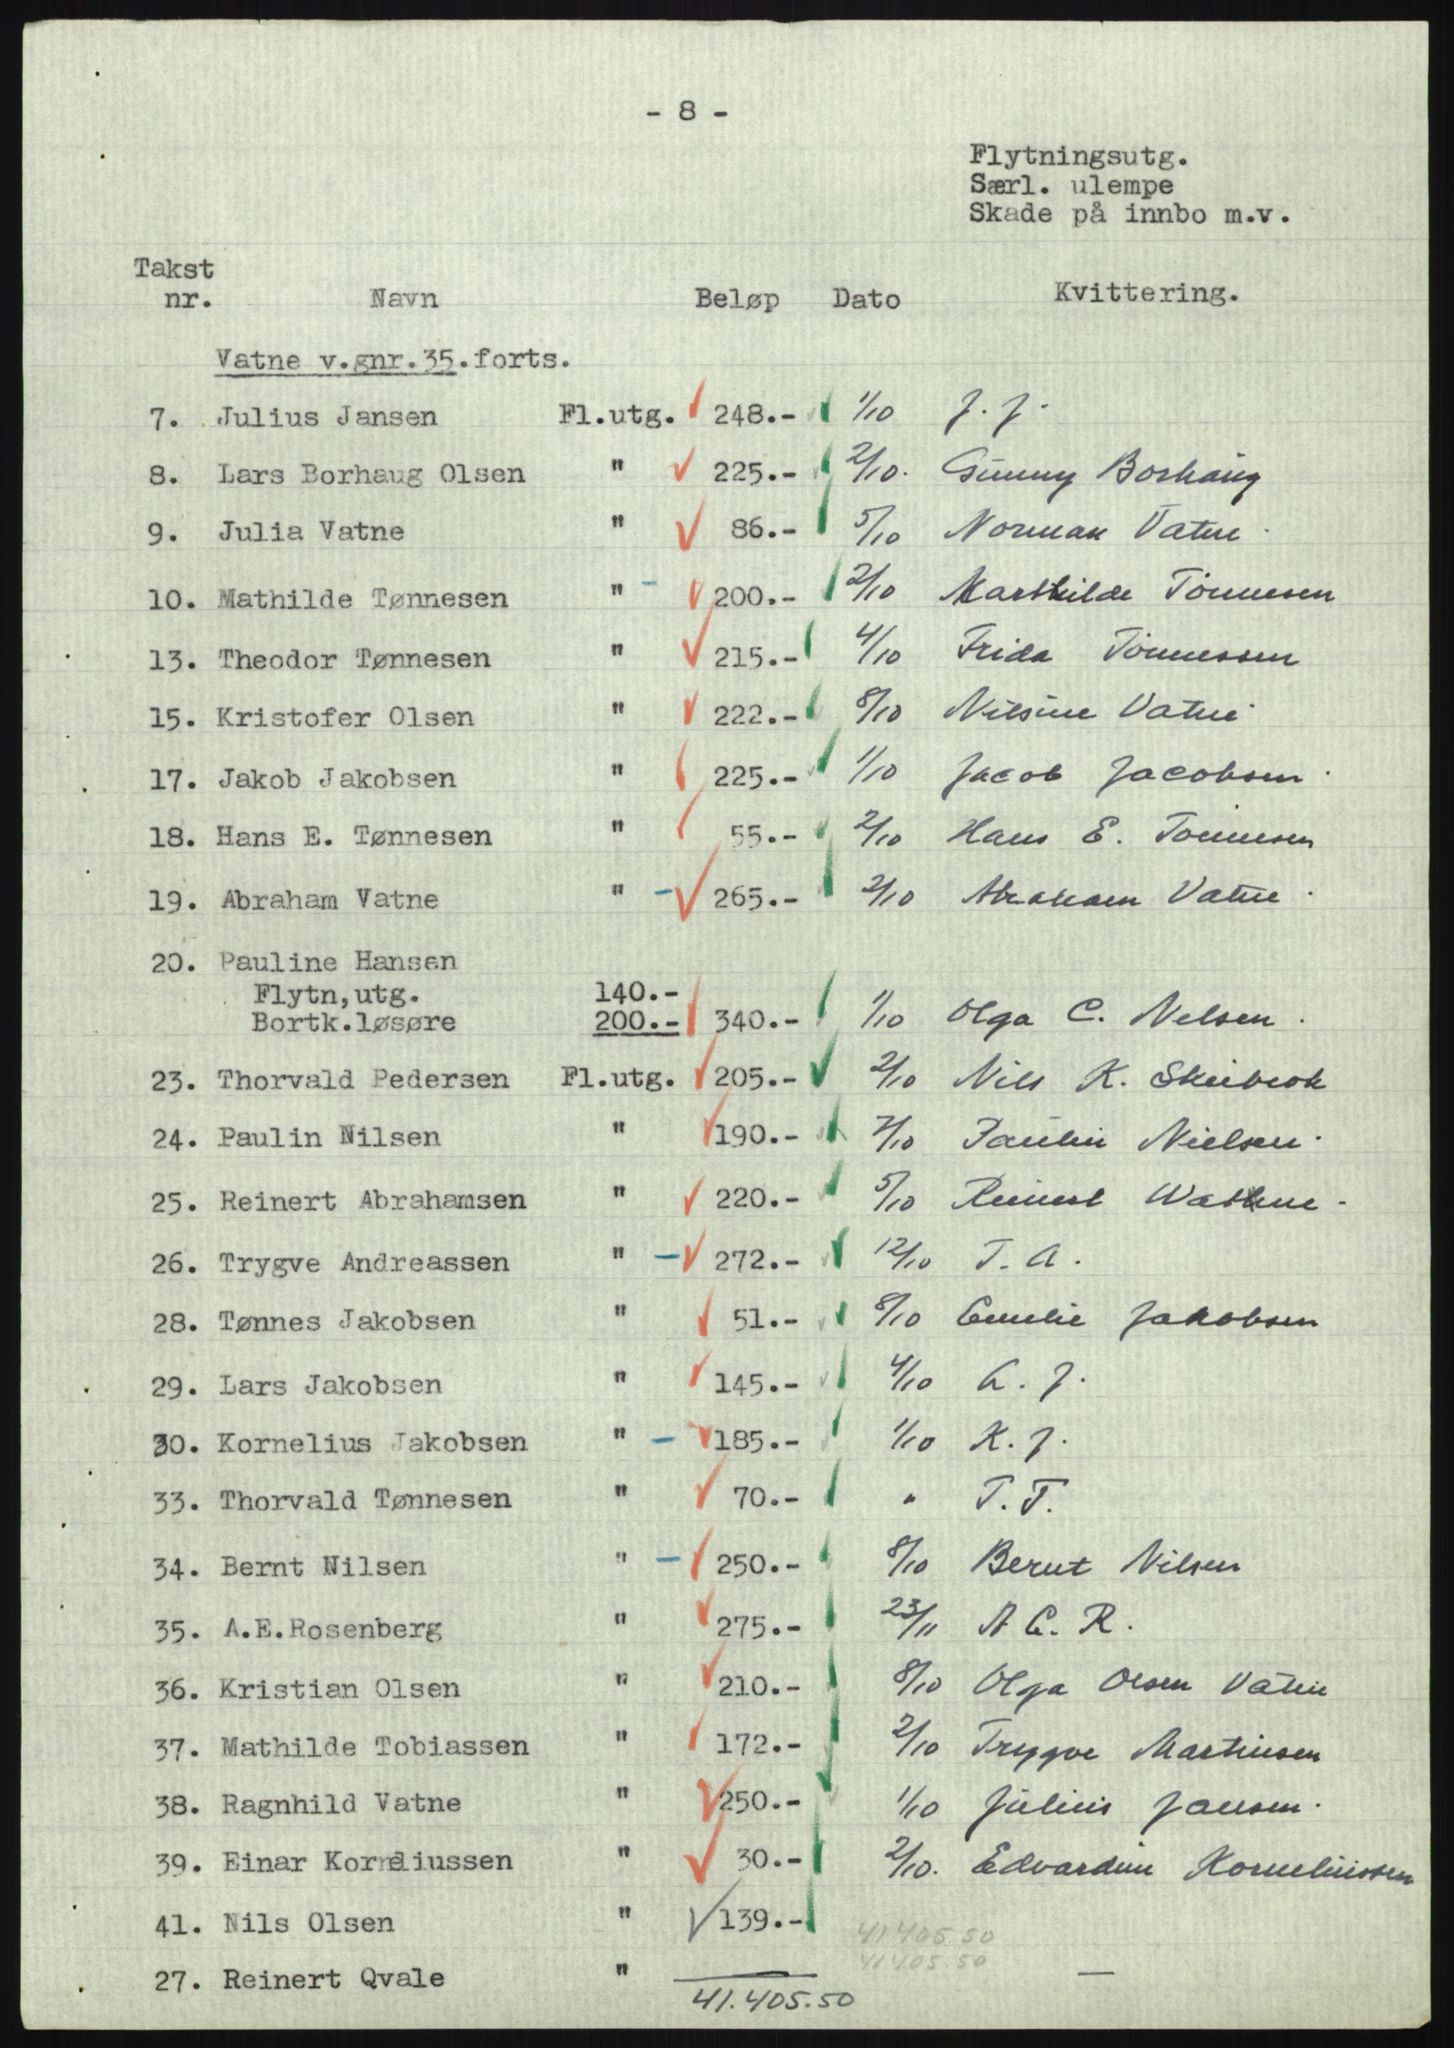 - 8 -
Flytningsutg.
Særl. ulempe
Skade på innbo m.v.
Takst nr. Navn Beløp Dato Kvittering.
Vatne v.gnr.35.forts.
7. Julius Jansen Fl.utg. 248.- 1/10 J. J.
8. Lars Borhaug Olsen " 225.- 2/10. Gunny Borhaug
9. Julia Vatne " 86.- 5/10 Norman Vatne
10. Mathilde Tønnesen " 200.- 2/10 Marthilde Tönnesen
13. Theodor Tønnesen " 215.- 4/10 Frida Tönnessen
15. Kristofer Olsen " 222.- 8/10 Nilsine Vatne
17. Jakob Jakobsen " 225.- 1/10 Jacob Jacobsen
18. Hans E. Tønnesen " 55.- 2/10 Hans E. Tönnesen
19. Abraham Vatne " 265.- 2/10 Abraham Vatne
20. Pauline Hansen
Flytn,utg. 140.-
Bortk.løsøre 200.- 340.- 1/10 Olga C. Nelsen
23. Thorvald Pedersen Fl.utg. 205.- 2/10 Nils K.
24. Paulin Nilsen " 190.- 2/10 Paulin Nielsen
25. Reinert Abrahamsen " 220.- 5/10 Reinert Wathne
26. Trygve Andreassen " 272.- 12/10 T. A.
28. Tønnes Jakobsen " 51.- 8/10 Emelie Jakobsen
29. Lars Jakobsen " 145.- 4/10 L. J.
30. Kornelius Jakobsen " 185.- 1/10 K. J.
33. Thorvald Tønnesen " 70.- " T. T.
34. Bernt Nilsen " 250.- 8/10 Bernt Nilsen
35. A.E.Rosenberg " 275.- 23/11 A E. R.
36. Kristian Olsen " 210.- 8/10 Olga Olsen Vatne
37. Mathilde Tobiassen " 172.- 2/10 Trygve Martinsen
38. Ragnhild Vatne " 250.- 1/10 Julius Jansen
39. Einar Korneliussen " 30.- 2/10. Edvardine Korneliussen
41. Nils Olsen " 139.-
41.405.50
41405.50
27. Reinert Qvale " —
41.405.50